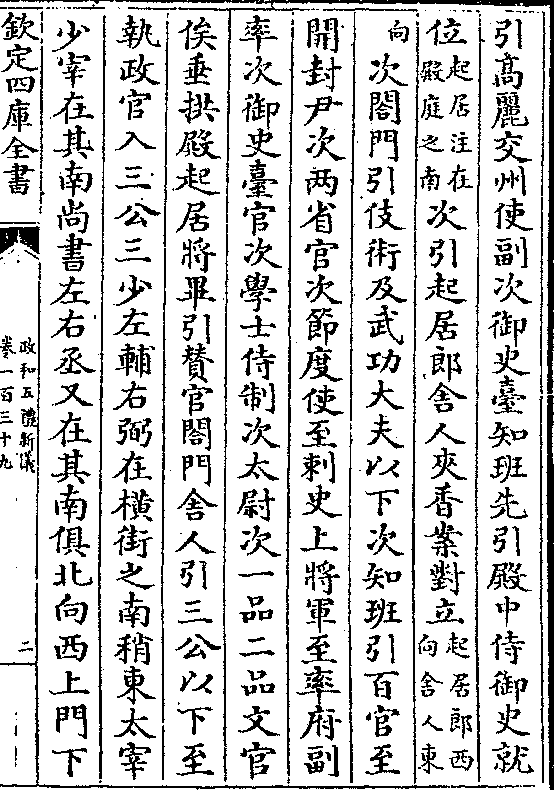 引高麗交州使副次御史臺知班先引殿中侍御史就
位起居注在殿庭之南次引起居郎舍人夾香案對立起居郎西向舍人東
向次閤門引伎術及武功大夫以下次知班引百官至
開封尹次两省官次節度使至刺史上將軍至率府副
率次御史臺官次學士待制次太尉次一品二品文官
俟垂拱殿起居將畢引贊官閤門舍人引三公以下至
執政官入三公三少左輔右弼在橫街之南稍東太宰
少宰在其南尚書左右丞又在其南俱北向西上門下
欽定四庫全書
政和五禮新儀
卷一百三十九
二